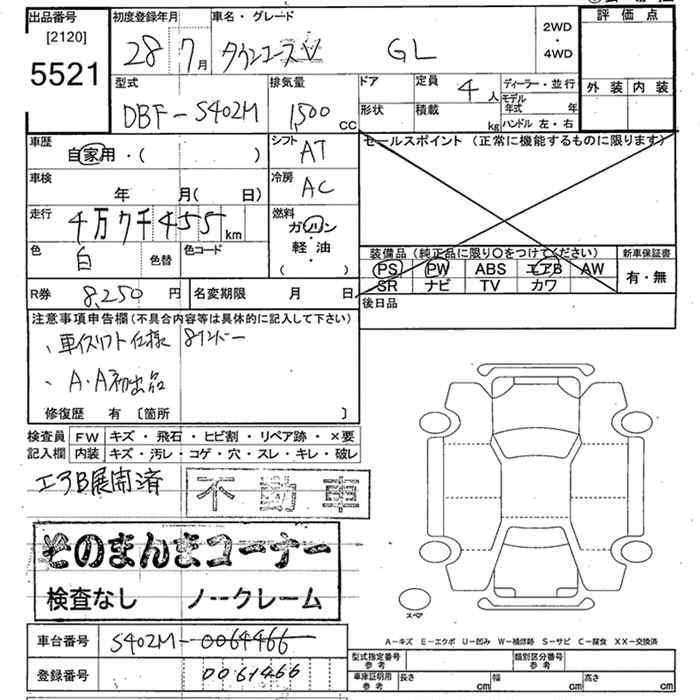 出品番号 初度登録年月 車名・グレード 評価点
[2120]
5521 28年7月 タウンエースV GL 2WD ・ 4WD
外装 内装
型式 排気量 ドア 定員 4人 ディーラー・並行
DBF-S402M 1,500 CC 形状 積載 kg モデル年式 年
ハンドル 左・右
車歴 自家用・( ) シフト AT セールスポイント (正常に機能するものに限ります)
車検 年 月( 日) 冷房 AC
走行 4万7千455km 燃料 ガソリン
軽・油
( )
色 白 色替 色コード
装備品 (純正品に限り〇をつけてください) 新車保証書
PS PW ABS エアB AW 有・無
SR ナビ TV カワ
R券 8,250円 名変期限 月 日 後日品
注意事項申告欄(不具合内容等は具体的に記入して下さい)
、車イスリフト仕様 8ナンバー
、A・A初出品
修復歴 有 [箇所 ]
検査員 FW キズ・飛石・ヒビ割・リペア跡・×要
記入欄 内装 キズ・汚レ・コゲ・穴・スレ・キレ・破レ
エアB展開済 不動車
そのまんまコーナー
検査なし ノークレーム
スペア
A-キズ E-エクボ U-凹み W-補修跡 S-サビ C-腐食 XX-交換済
車台番号 S402M-0064466
登録番号 0061466
型式指定番号 参考 類別区分番号 参考
車庫証明用 参考 長さ cm 幅 cm 高さ cm